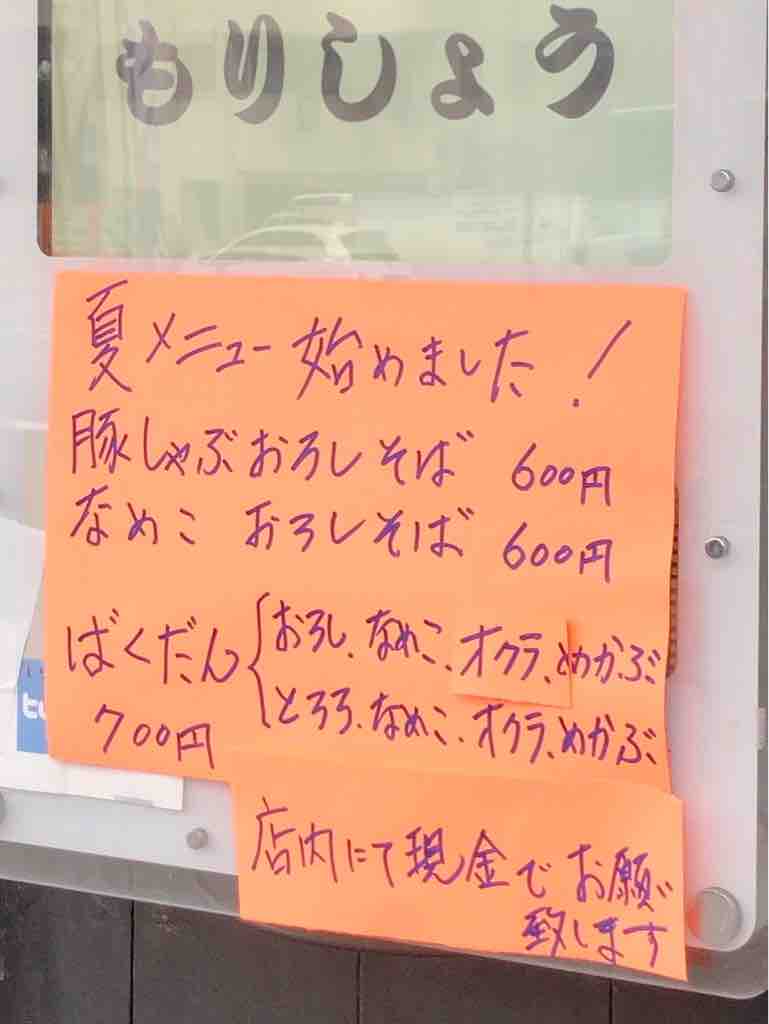 もりしょう
夏メニュー始めました!
豚しゃぶおろしそば 600円
なめこ おろしそば 600円
ばくだん
700円
おろし、なめこ、オクラ、めかぶ
とろろ、なめこ、オクラ、めかぶ
店内にて現金でお願い
致します